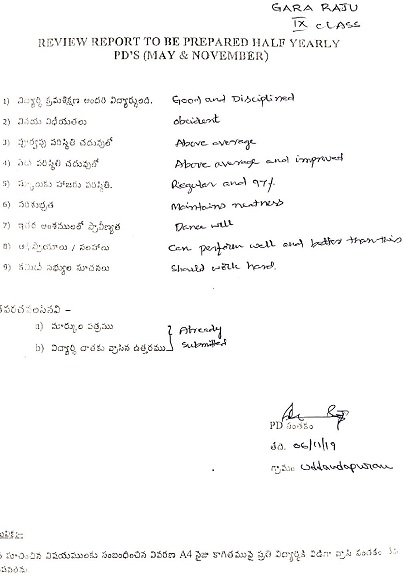 GARA RAJU
IX CLASS
REVIEW REPORT TO BE PREPARED HALF YEARLY
PD'S (MAY & NOVEMBER)
1) విద్యార్థి క్రమశిక్షణ అందరి విద్యార్థులది. Good and Disciplined
2) వినయ విధేయతలు obedient
3) పూర్వపు పరిస్థితి చదువులో Above average
4) పరిస్థితి చదువులో Above average and improved
5) హాజరు పరిస్థితి. Regular and 97%
6) పరిశుభ్రత Maintains neatness
7) ఇతర అంశములలో ప్రావీణ్యత Dance well
8) అభిప్రాయాలు / సలహాలు Can perform well and better than this
9) కమిటీ సభ్యుల సూచనలు Should work hard.
a) మార్కుల పత్రము Already
b) విద్యార్థి దాతకు వ్రాసిన ఉత్తరము submitted
PD సంతకం
తేది. 06/11/19
గ్రామం Uddandapuram
సూచించిన విషయములకు సంబంధించిన వివరణ A4 సైజు కాగితముపై ప్రతి విద్యార్థికి విడిగా వ్రాసి సంతకం